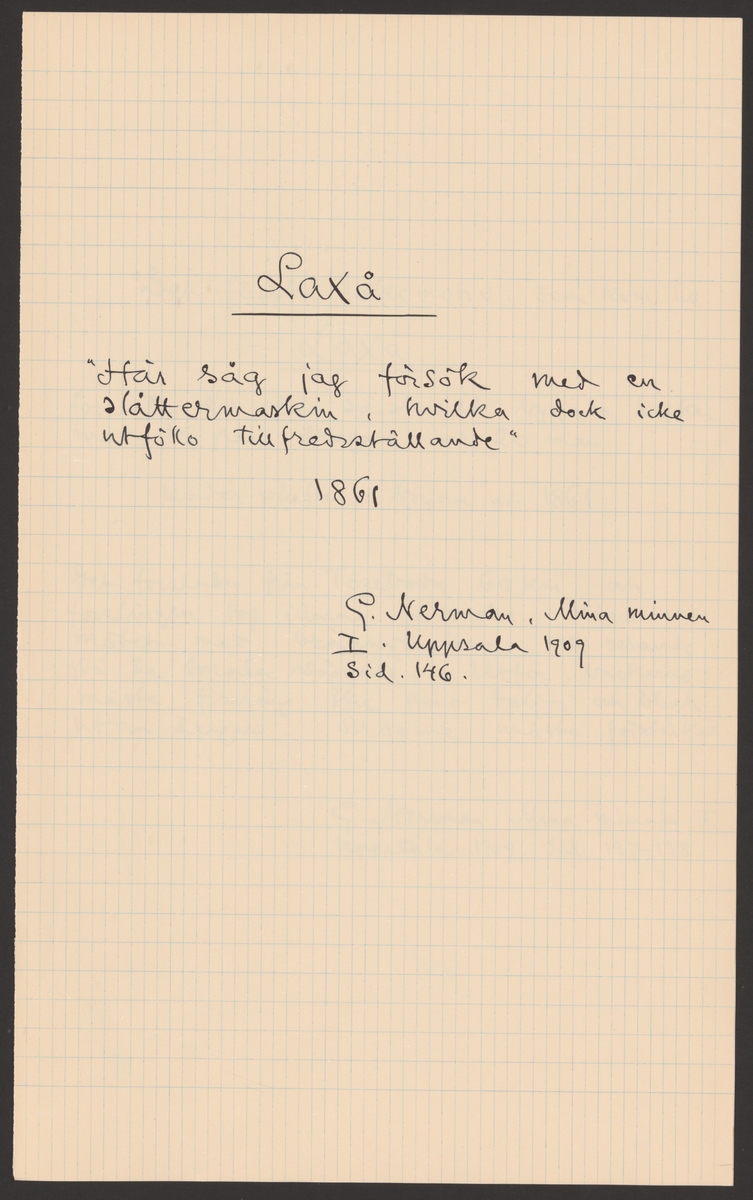 Laxå
"Här såg jag försök med en
slåttermaskin, hvilka dock icke
utföllo tillfredsställande"
1861
G. Nerman, Mina minnen
I. Uppsala 1909
Sid. 146.